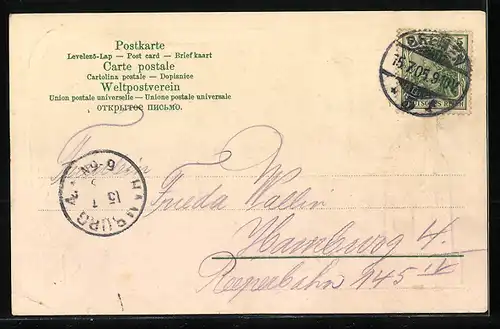 Postkarte
Levelező-Lap — Post card — Briefkaart
Carte postale
Cartolina postale — Dopisnice
Weltpostverein
Union postale universelle — Unione postale universale
ОТКРЫТОЕ ПИСЬМО.
BREMEN
DEUTSCHES REICH
HAMBURG
Fräulein
Frieda Wallin
Hamburg 4.
Reeperbahn 145 IV